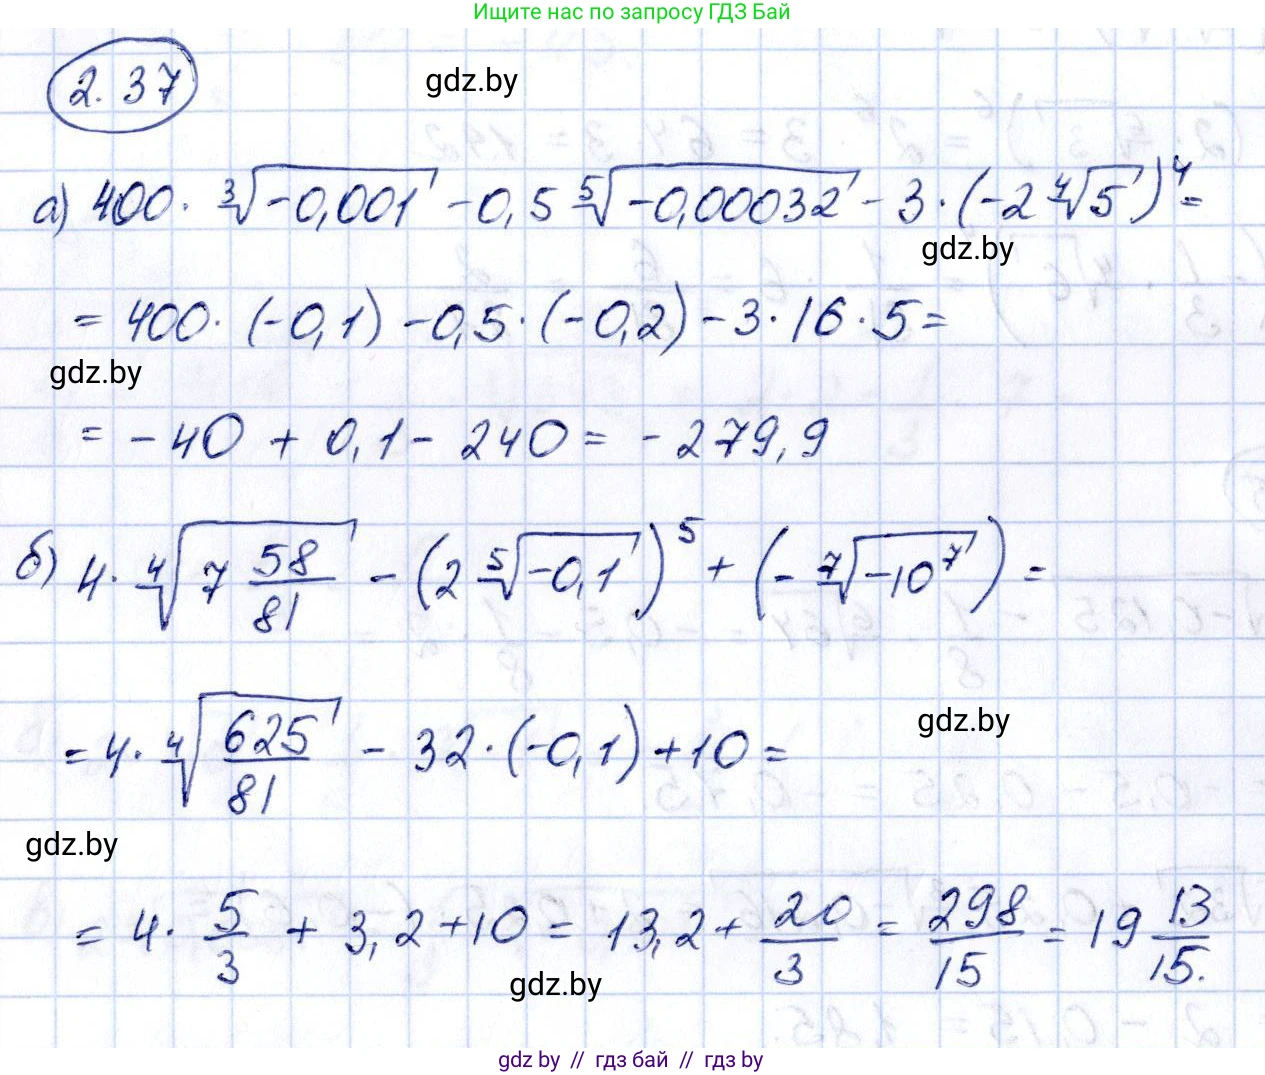 Ищите нас по запросу ГДЗ Бай
2.37
gdz.by
а) 400 · ∛(-0,001) - 0,5 ⁵√(-0,00032) - 3 · (-2 ⁴√5)⁴ =
gdz.by
= 400 · (-0,1) - 0,5 · (-0,2) - 3 · 16 · 5 =
gdz.by
= -40 + 0,1 - 240 = -279,9
б) 4 · ⁴√(7 58/81) - (2 ⁵√(-0,1))⁵ + (- ⁷√(-10⁷)) =
gdz.by
= 4 · ⁴√(625/81) - 32 · (-0,1) + 10 =
gdz.by
= 4 · 5/3 + 3,2 + 10 = 13,2 + 20/3 = 298/15 = 19 13/15.
gdz.by
gdz by // гдз бай // гдз by